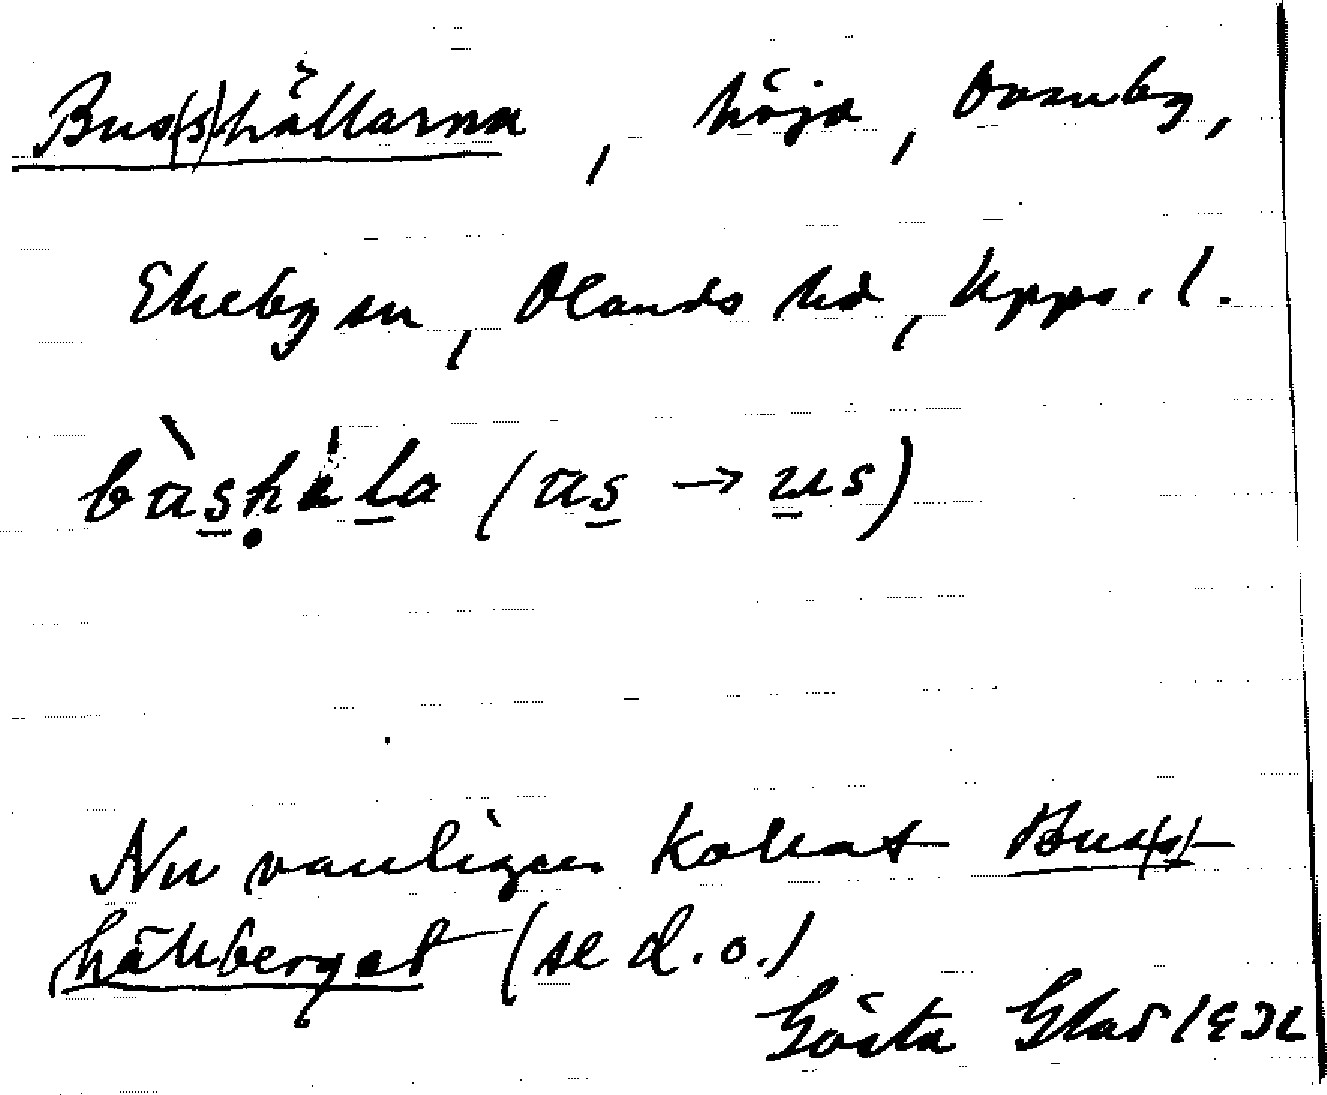 Bus(s)hällarna, höjd, Ovanby,
Ekeby sn, Olands hd, Upps. l.
bùshàla (us → us)
Nu vanligen kallat Bus(s)-
hällberget (se d.o.)
Gösta Glad 1932